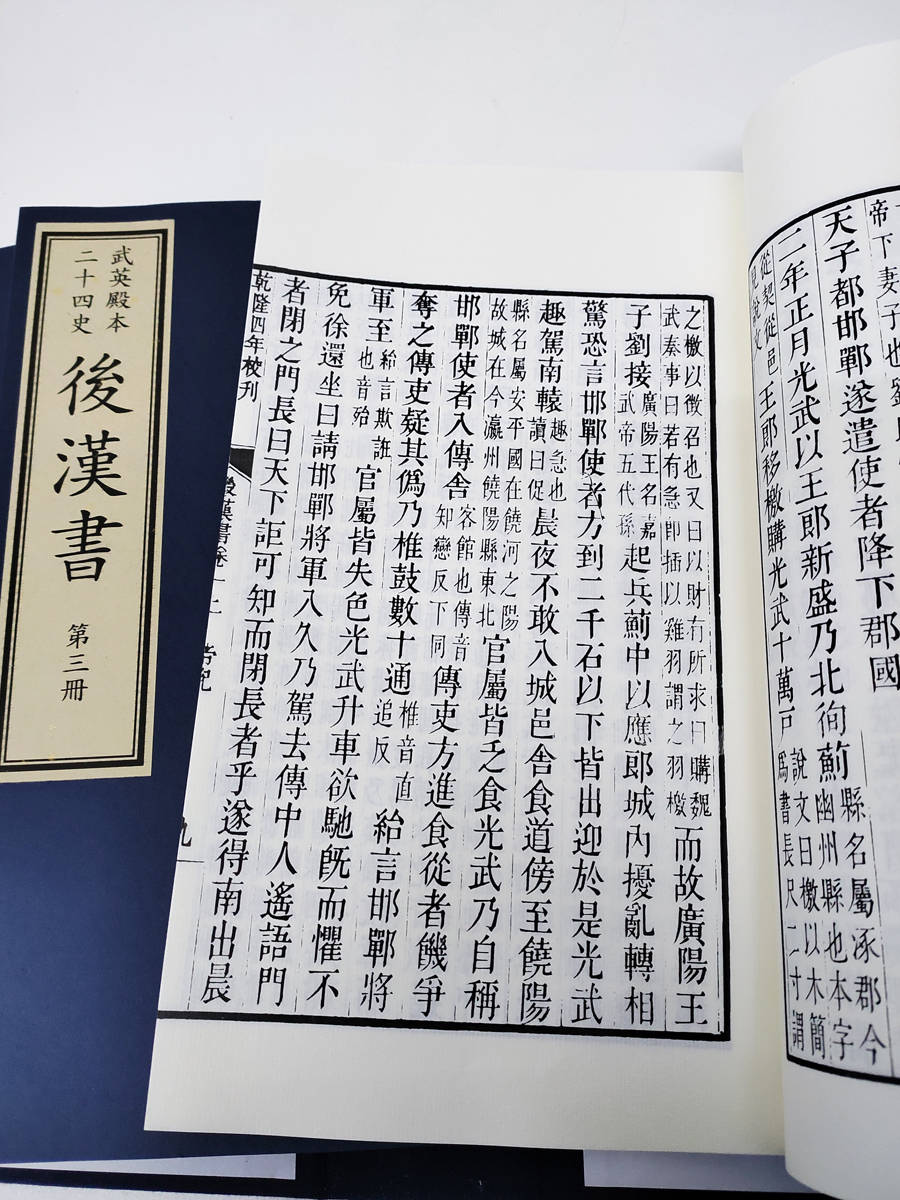 武英殿本
二十四史
後漢書
第三冊
帝下妻子也劉
天子都邯鄲遂遣使者降下郡國
二年正月光武以王郎新盛乃北徇薊縣名屬涿郡今幽州縣也本字
從契從邑王郎移檄購光武十萬戶說文曰檄以木簡為書長尺二寸謂
之檄以徵召也又曰以財有所求曰購魏武奏事曰若有急即插以雞羽謂之羽檄而故廣陽王
子劉接廣陽王名嘉武帝五代孫起兵薊中以應郎城內擾亂轉相
驚恐言邯鄲使者方到二千石以下皆出迎於是光武
趣駕南轅趣急也讀曰促晨夜不敢入城邑舍食道傍至饒陽
縣名屬安平國在饒河之陽故城在今瀛州饒陽縣東北官屬皆乏食光武乃自稱
邯鄲使者入傳舍客館也傳音知戀反下同傳吏方進食從者饑爭
奪之傳吏疑其偽乃椎鼓數十通椎音直追反紿言邯鄲將
軍至紿言欺誑也音殆官屬皆失色光武升車欲馳既而懼不
免徐還坐曰請邯鄲將軍入久乃駕去傳中人遙語門
者閉之門長曰天下詎可知而閉長者乎遂得南出晨
乾隆四年校刊
漢書卷一上
九